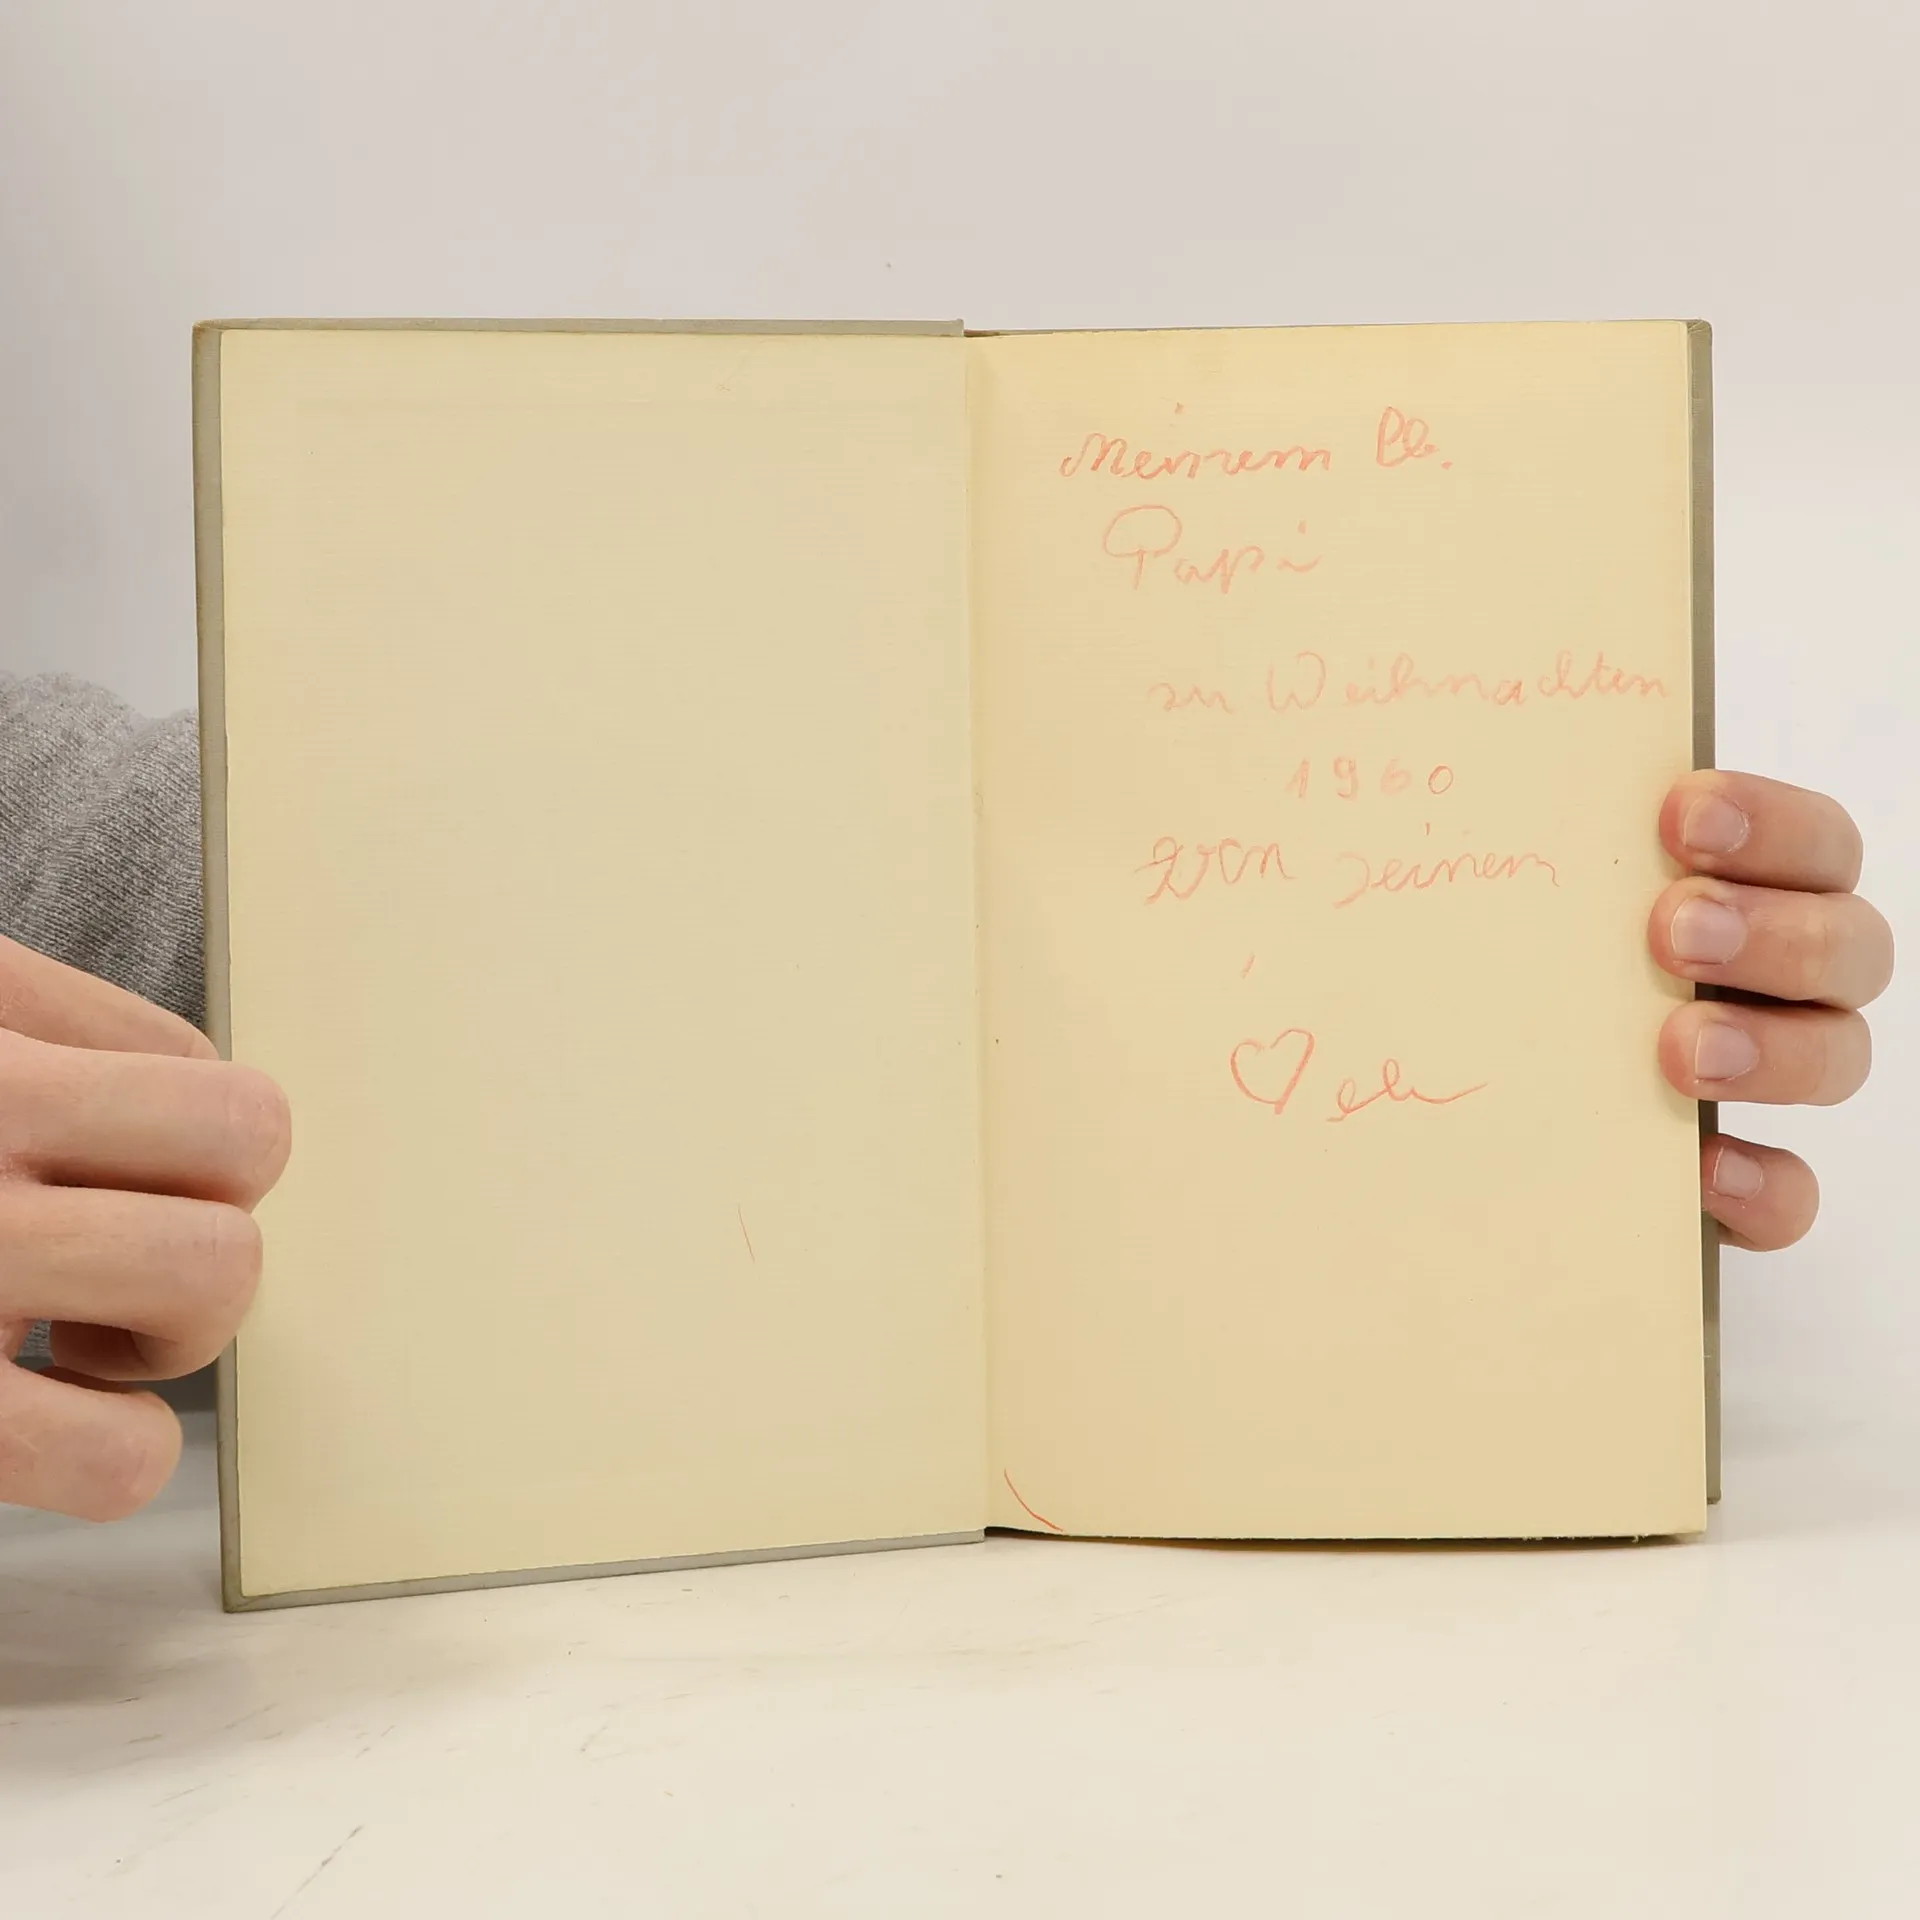 Meinem lb.
Papi
zu Weihnachten
1960
von seinem